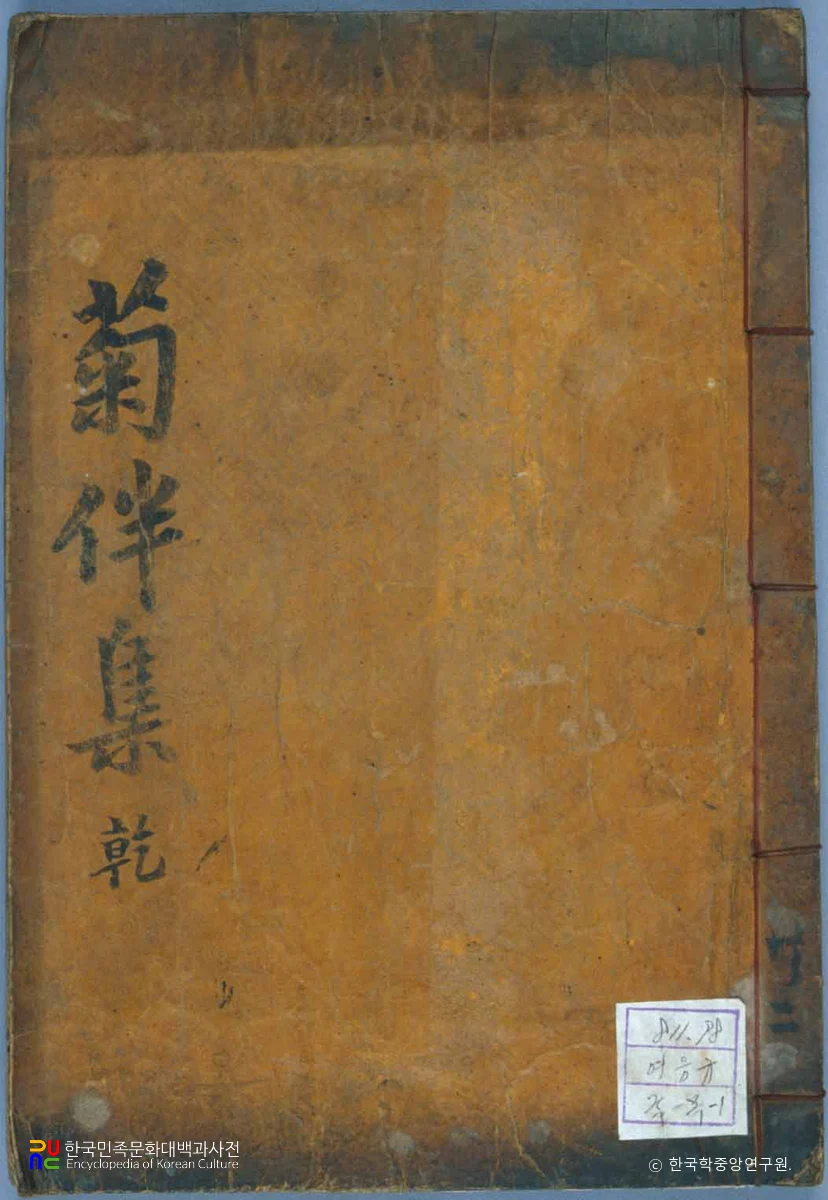 菊伴集 乾
811.98
여응규
한국민족문화대백과사전
Encyclopedia of Korean Culture
© 한국학중앙연구원.